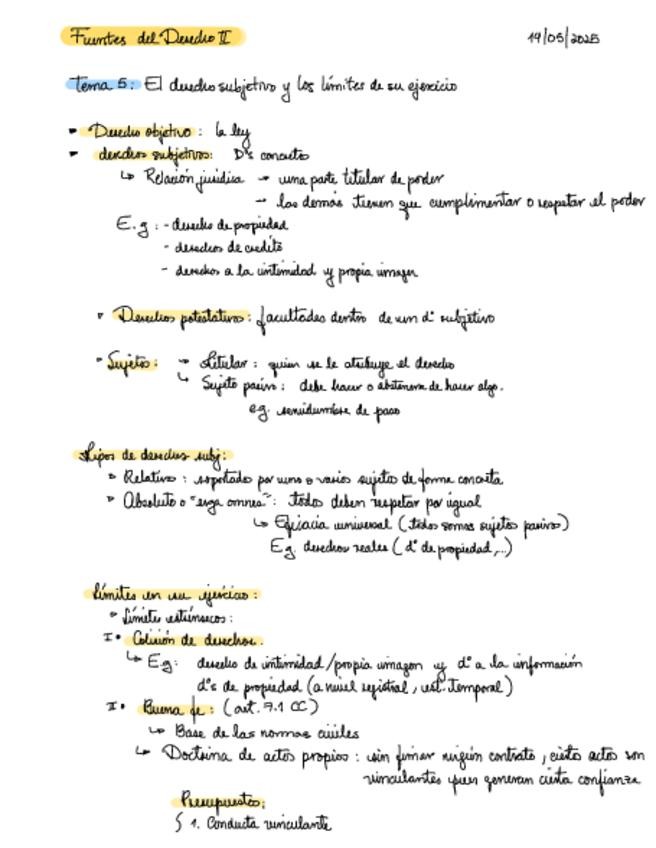 Fuentes del Derecho II 19/05/2025
Tema 5: El derecho subjetivo y los límites de su ejercicio
- Derecho objetivo: la ley
- derechos subjetivos: D's concretos
↳ Relación jurídica → una parte titular de poder
→ los demás tienen que cumplimentar o respetar el poder
E.g: - derecho de propiedad
- derechos de crédito
- derechos a la intimidad y propia imagen
• Derechos potestativos: facultades dentro de un dº subjetivo
• Sujetos: → titular: quien se le atribuye el derecho
↳ Sujeto pasivo: debe hacer o abstenerse de hacer algo.
eg. servidumbre de paso
tipos de derechos subj:
• Relativo: soportado por uno o varios sujetos de forma concreta
• Absoluto o "erga omnes": todos deben respetar por igual
↳ Eficacia universal (todos somos sujetos pasivos)
Eg. derechos reales (dº de propiedad,...)
límites en su ejercicio:
• límites extrínsecos:
I• Colisión de derechos.
↳ E.g: derecho de intimidad/propia imagen y dº a la información
dºs de propiedad (a nivel registral, est. temporal)
I• Buena fe: (art. 7.1 CC)
↳ Base de las normas civiles
↳ Doctrina de actos propios: sin firmar ningún contrato, ciertos actos son
vinculantes pues generan cierta confianza
Presupuestos:
1. Conducta vinculante